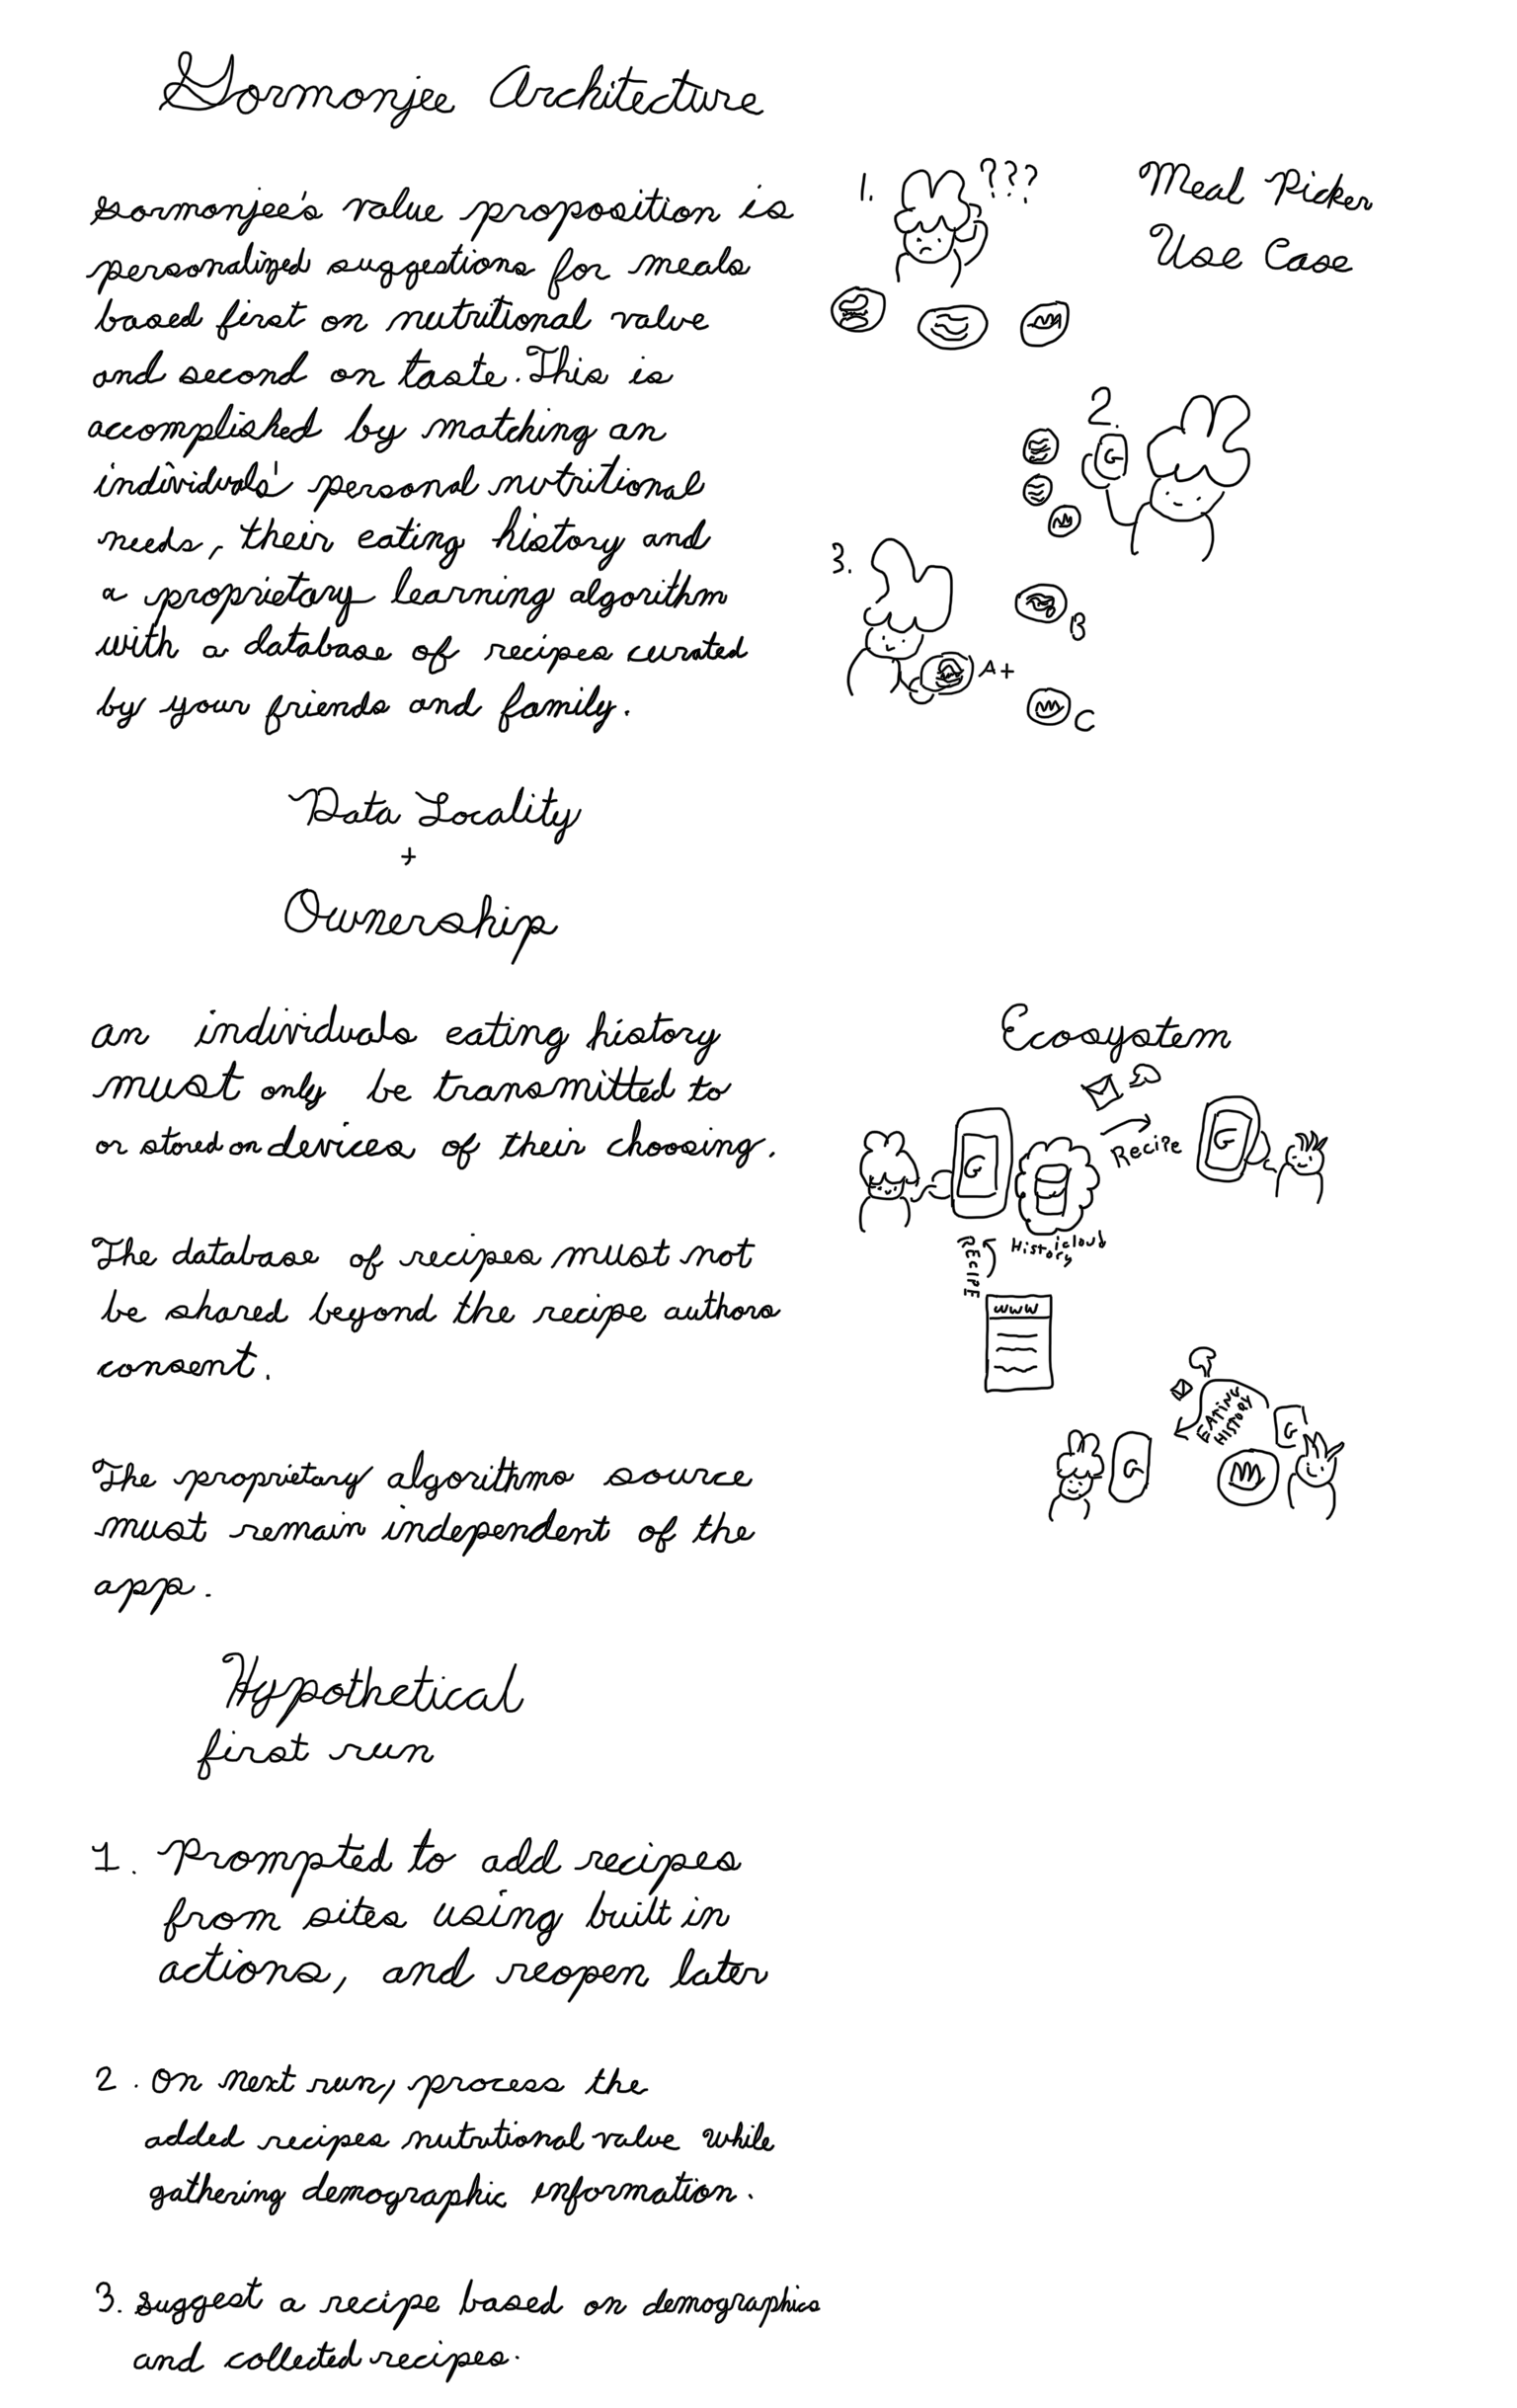 Gormonjee Architecture
Gormonjee's value proposition is
personalized suggestions for meals
based first on nutritional value
and second on taste. This is
accomplished by matching an
individuals' personal nutritional
needs, their eating history and
a proprietary learning algorithm
with a database of recipes curated
by your friends and family.
Meal Picker
Use Case
1.
???
2.
G
3.
B
A+
C
Data Locality
+
Ownership
an individuals eating history
must only be transmitted to
or stored on devices of their choosing.
The database of recipes must not
be shared beyond the recipe authors
consent.
The proprietary algorithms source
must remain independent of the
app.
Ecosystem
G
Recipe
G
History
icloud
RECIPE
www
EATING
HISTORY
G
G
Hypothetical
first run
1. Prompted to add recipes
from sites using built in
actions, and reopen later
2. On next run, process the
added recipes nutritional value while
gathering demographic information.
3. Suggest a recipe based on demographics
and collected recipes.